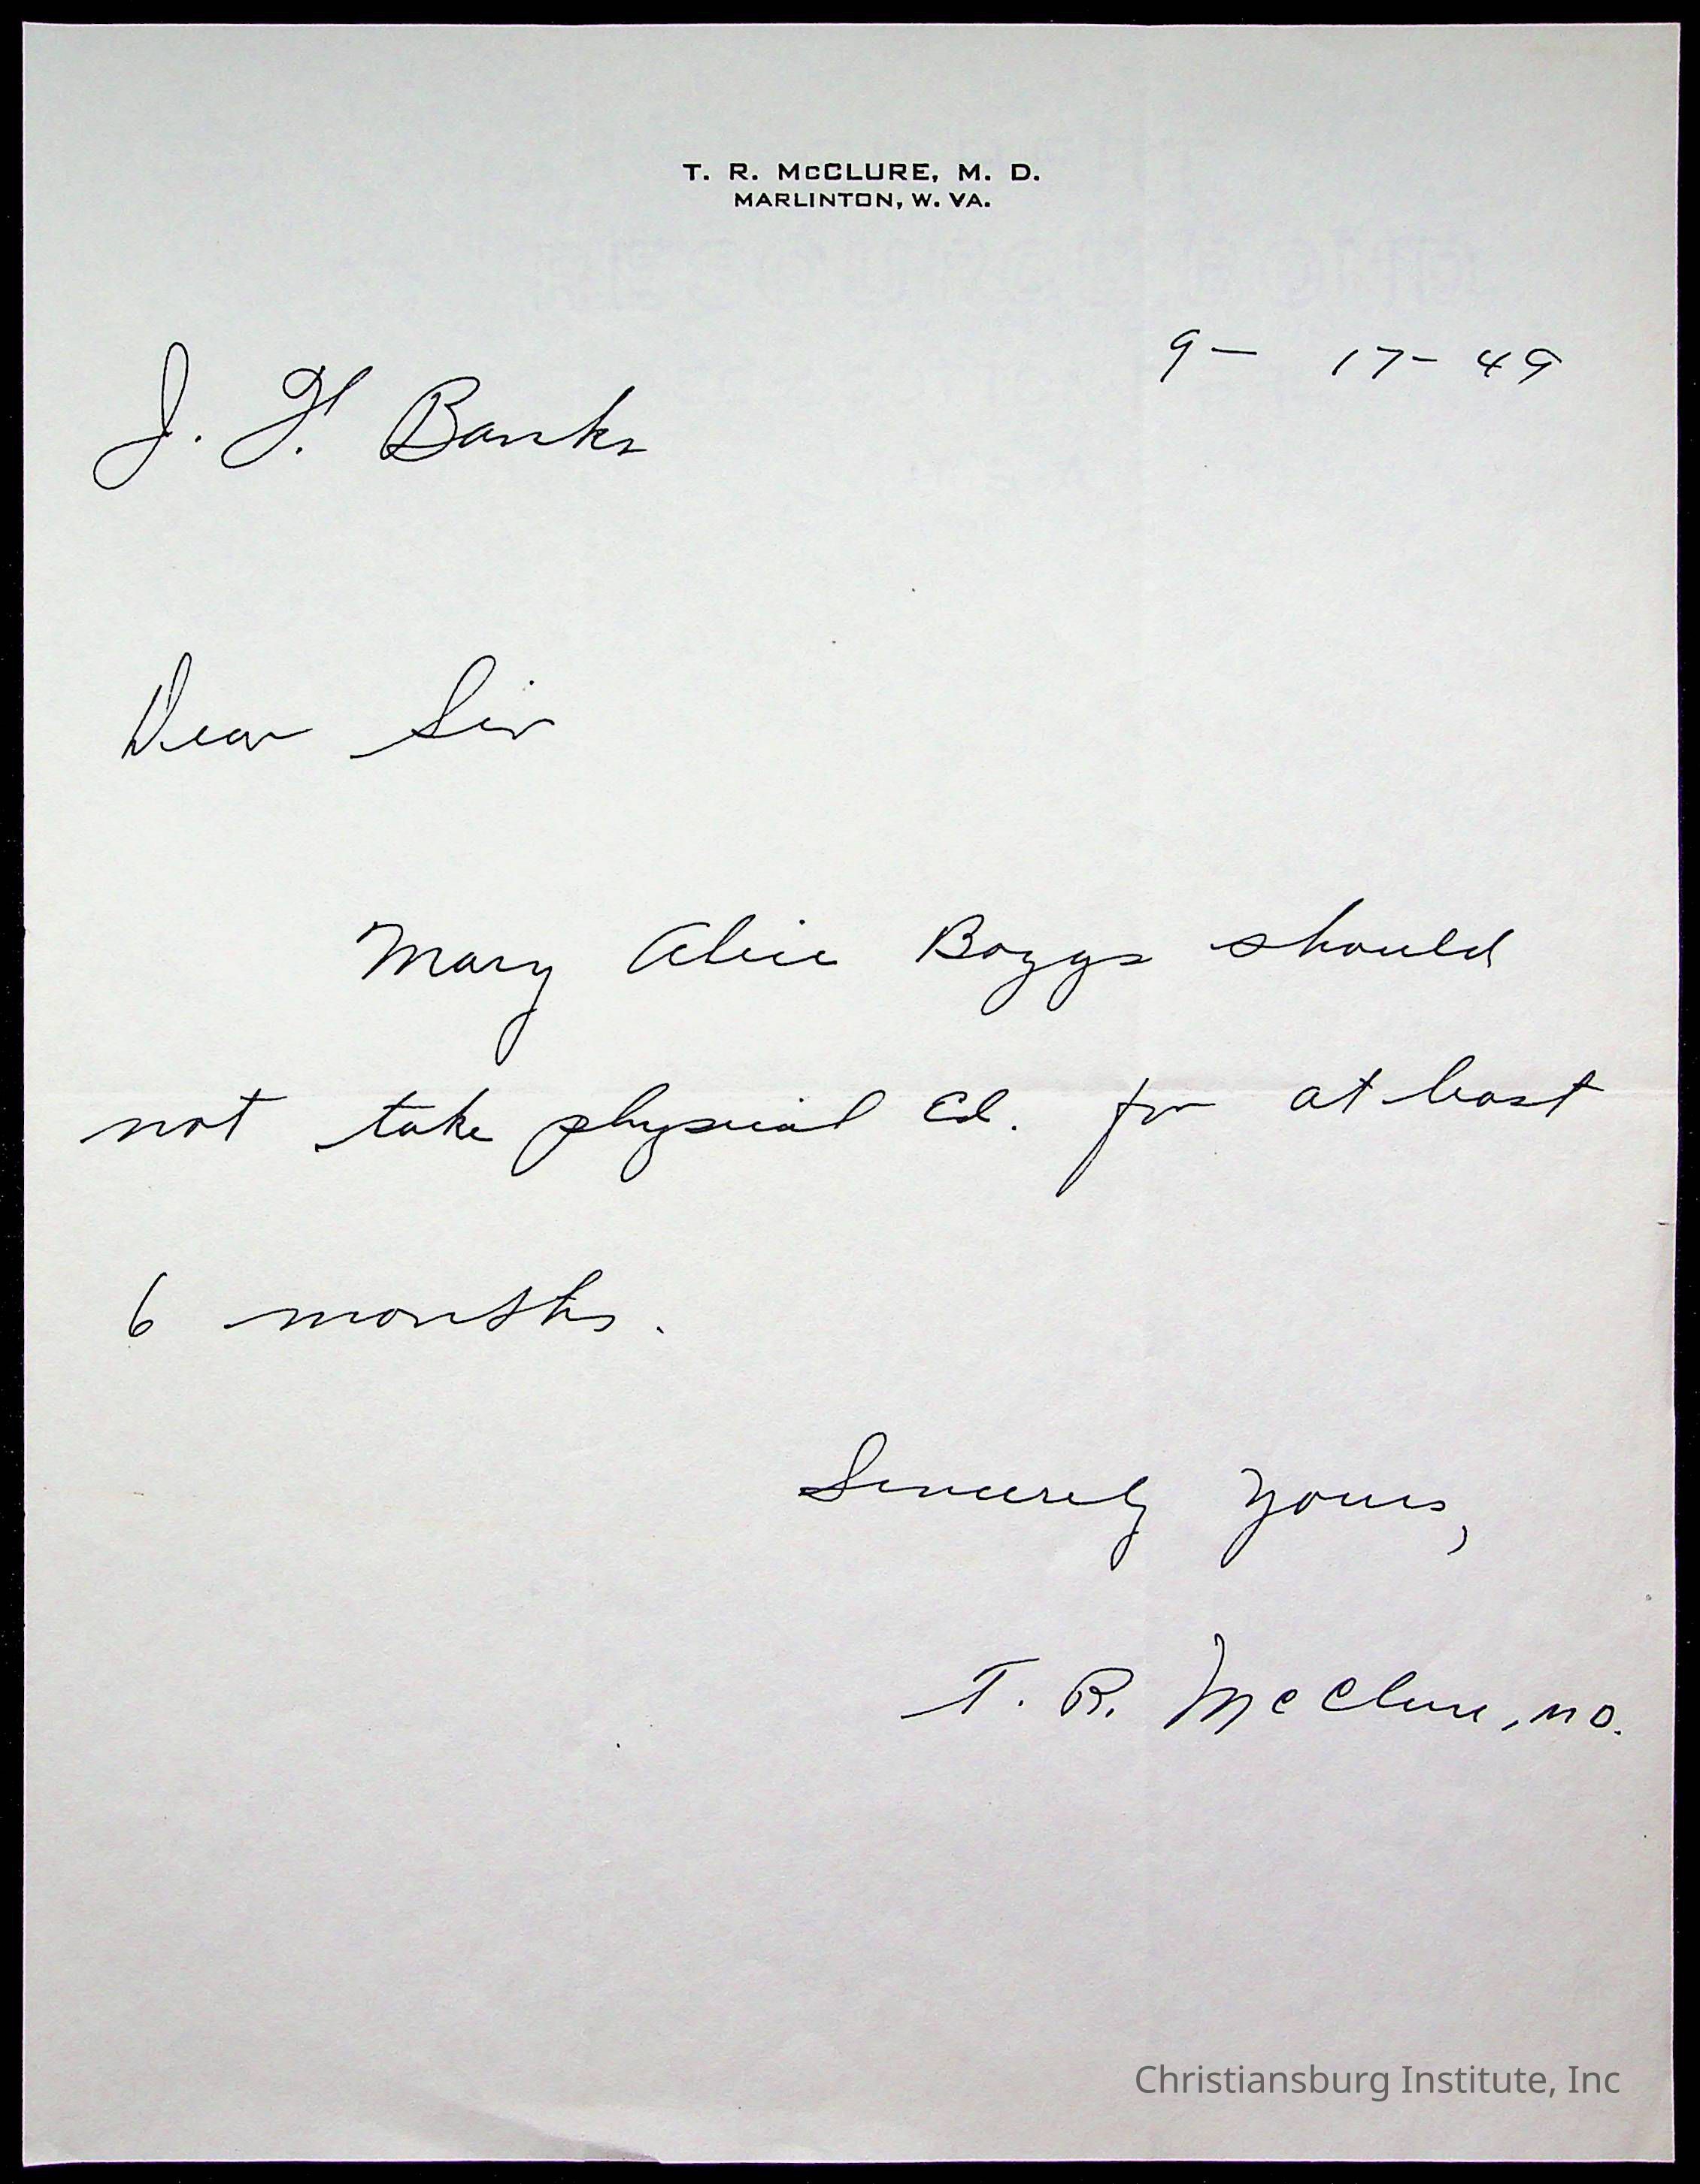 T. R. McCLURE, M. D.
MARLINTON, W. VA.
9- 17-49
J. F. Banks
Dear Sir
Mary Alice Boggs should
not take physical Ed. for at least
6 months.
Sincerely yours,
T. R. McClure, MD.
Christiansburg Institute, Inc